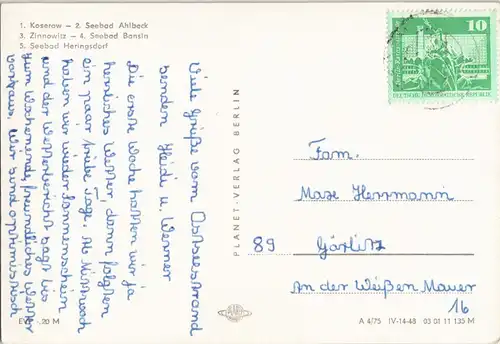 1. Koserow – 2. Seebad Ahlbeck
3. Zinnowitz – 4. Seebad Bansin
5. Seebad Heringsdorf
Viele Grüße vom Ostseestrand
senden Heidi u. Werner
Die erste Woche hatten wir ja
herrliches Wetter, dann folgten
ein paar trübe Tage. Ab Mittwoch
haben wir wieder Sonnenschein
und der Wetterbericht sagt bis
zum Wochenende freundliches Wetter
voraus. Wir sind optimistisch
EVP -.20 M
PLANET-VERLAG BERLIN
PLANET
10
DEUTSCHE DEMOKRATISCHE REPUBLIK
Fam.
Max Herrmann
89 Görlitz
An der Weißen Mauer
16
A 4/75 IV-14-48 03 01 11 135 M